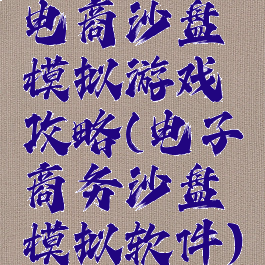 电商沙盘
模拟游戏
攻略(电子
商务沙盘
模拟软件)